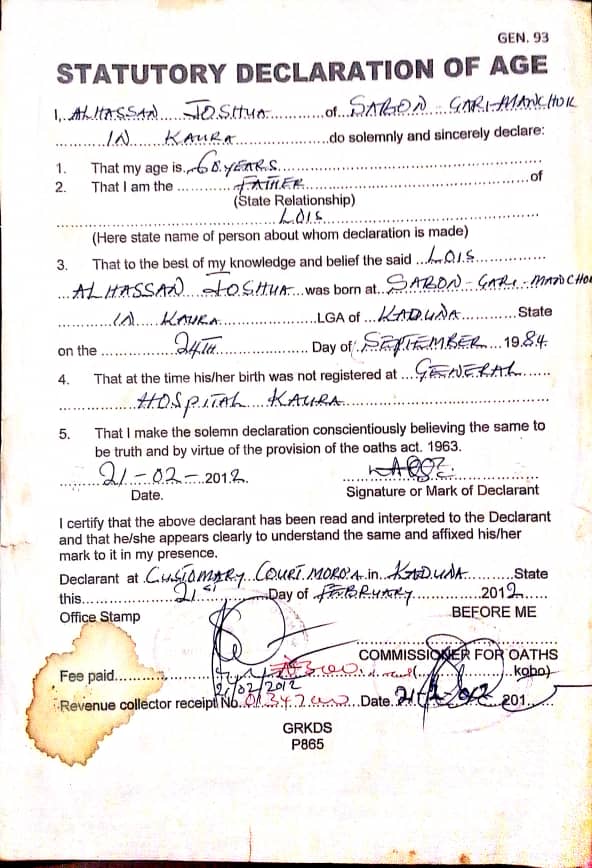 GEN. 93
STATUTORY DECLARATION OF AGE
I, ALHASSAN JOSHUA of SABON - GARI-MANCHOK
IN KAURA do solemnly and sincerely declare:
1. That my age is 60 YEARS
2. That I am the FATHER of
(State Relationship)
LOIS
(Here state name of person about whom declaration is made)
3. That to the best of my knowledge and belief the said LOIS
ALHASSAN JOSHUA was born at SABON - GARI - MANCHO
IN KAURA LGA of KADUNA State
on the 24TH Day of SEPTEMBER 1984
4. That at the time his/her birth was not registered at GENERAL
HOSPITAL KAURA
5. That I make the solemn declaration conscientiously believing the same to
be truth and by virtue of the provision of the oaths act. 1963.
21-02-2012.
Date. Signature or Mark of Declarant
I certify that the above declarant has been read and interpreted to the Declarant
and that he/she appears clearly to understand the same and affixed his/her
mark to it in my presence.
Declarant at CUSTOMARY COURT MORO'A in KADUNA State
this 21st Day of FEBRUARY 2012
Office Stamp BEFORE ME
COMMISSIONER FOR OATHS
Fee paid kobo)
21/02/2012
Revenue collector receipt No. Date 201
GRKDS
P865